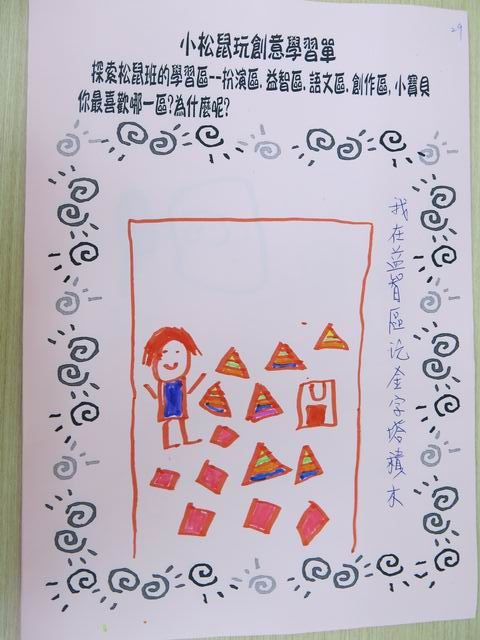 29
小松鼠玩創意學習單
探索松鼠班的學習區--扮演區.益智區.語文區.創作區.小寶貝
你最喜歡哪一區?為什麼呢?
我在益智區玩金字塔積木